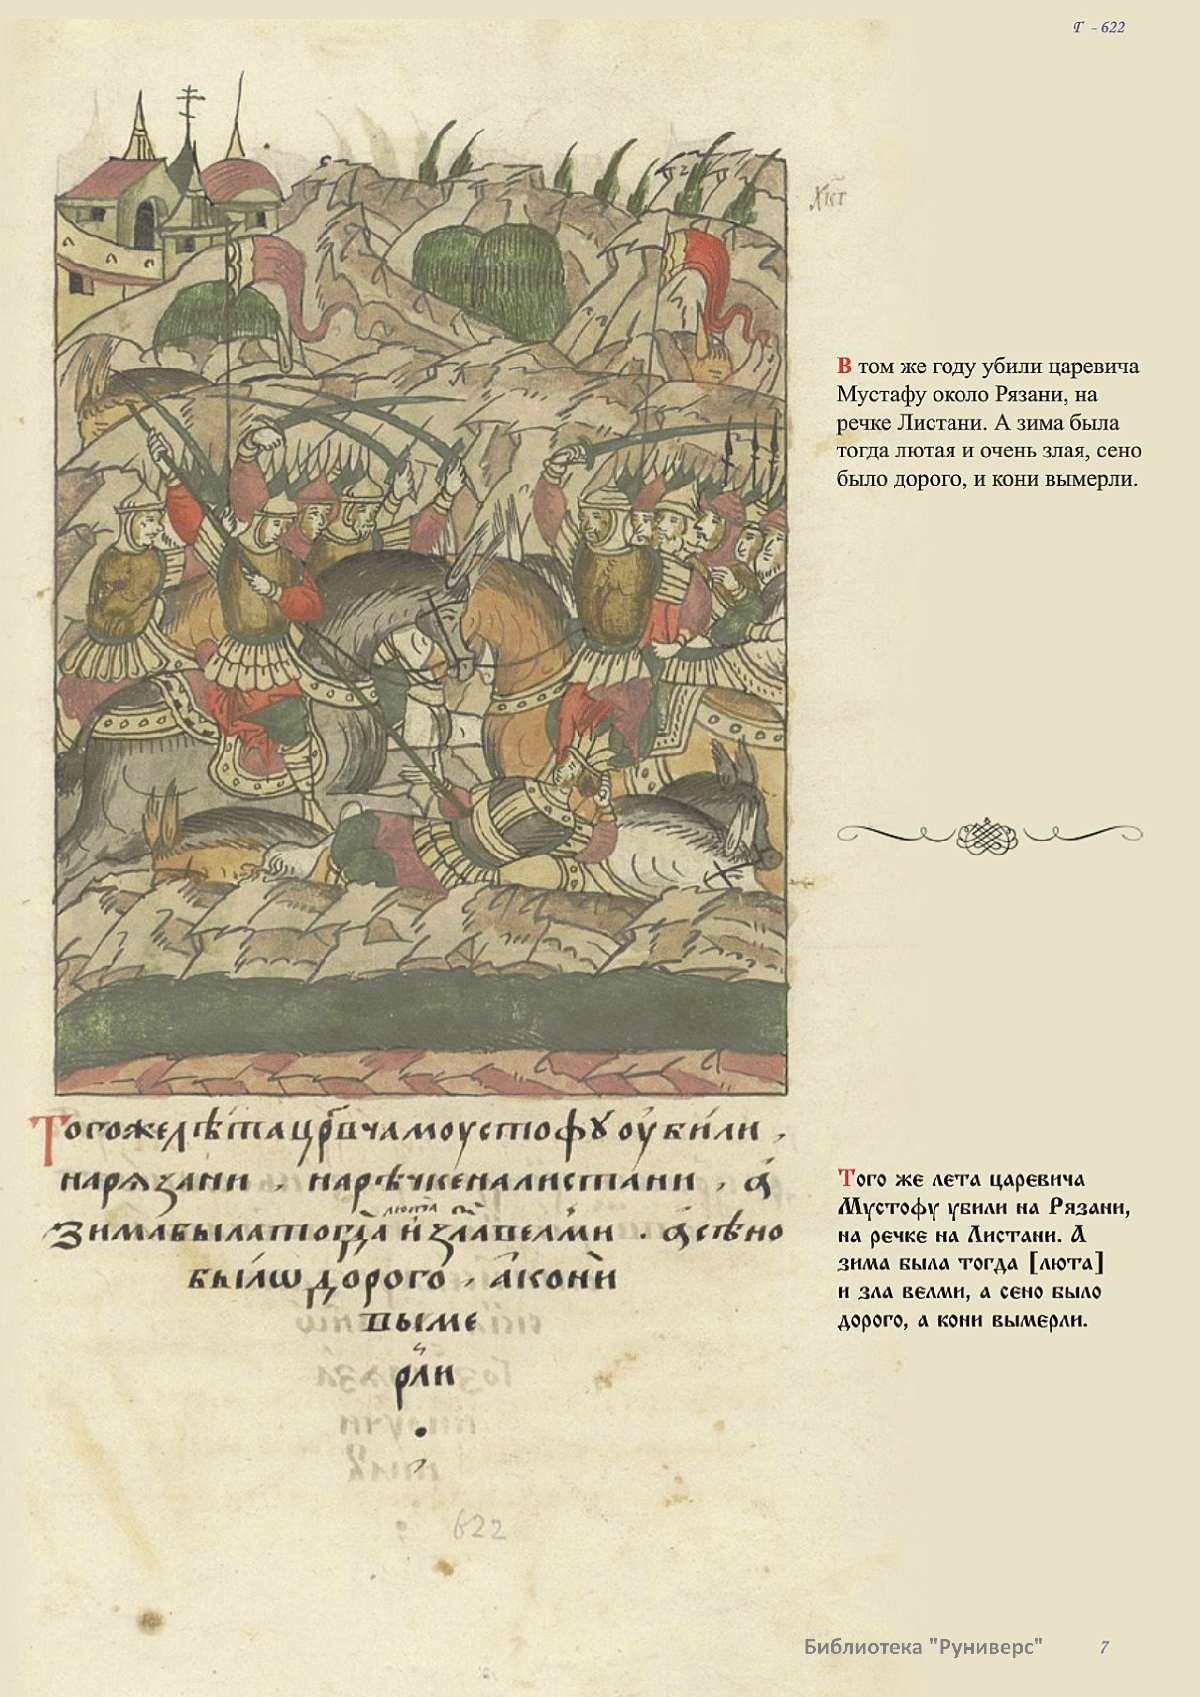 Г - 622
В том же году убили царевича
Мустафу около Рязани, на
речке Листани. А зима была
тогда лютая и очень злая, сено
было дорого, и кони вымерли.
Того же лѣта црвча моустофꙋ оубили ,
на рѧзани , на рѣчке на листани , а
люта
зима была тогда и зла велми . а сѣно
былѡ дорого , а кони
выме
рли
622
Того же лета царевича
Мустофу убили на Рязани,
на речке на Листани. А
зима была тогда [люта]
и зла велми, а сено было
дорого, а кони вымерли.
Библиотека "Руниверс" 7